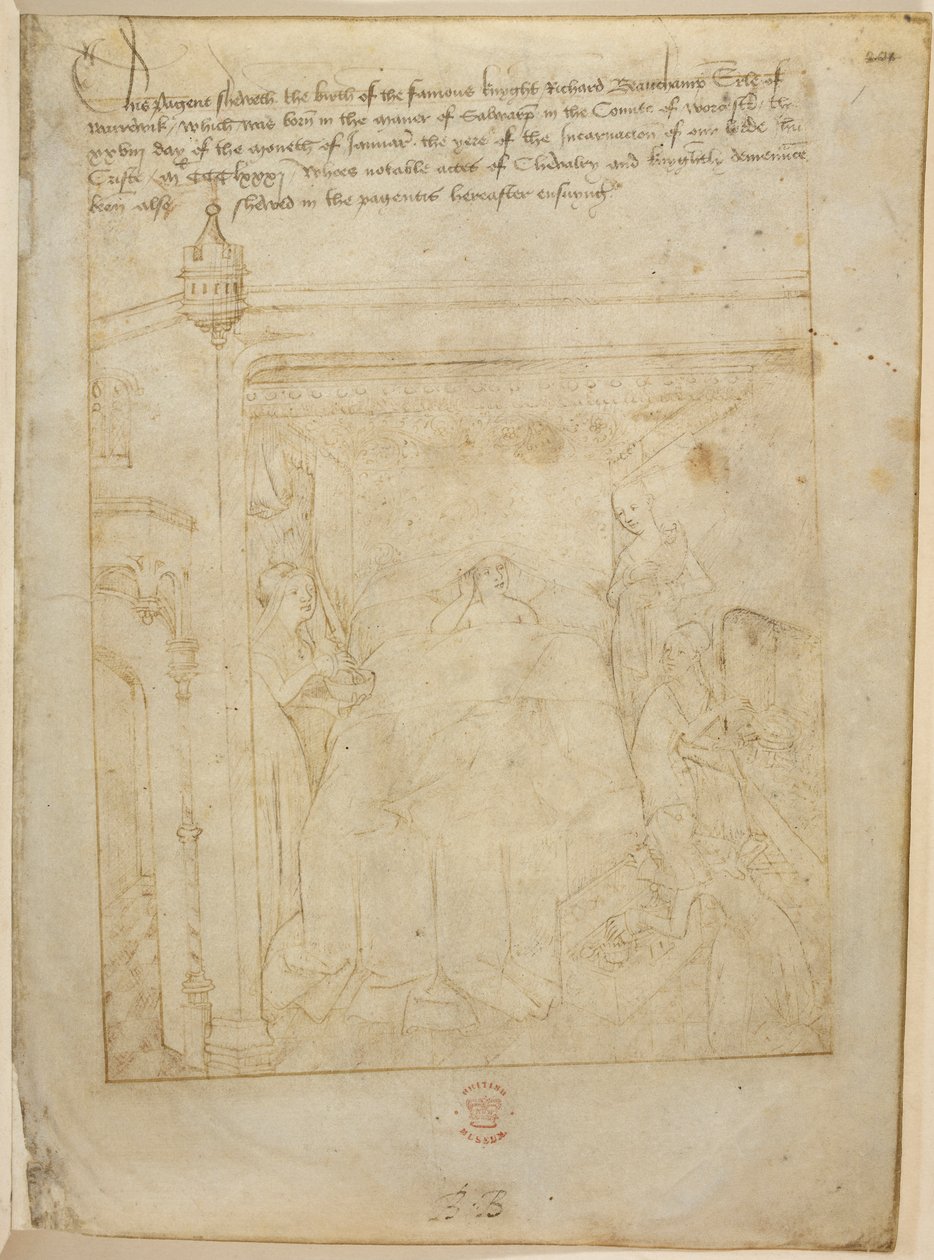 This Pagent sheweth the birth of the famous knyght Richard Beauchamp Erle of
warrewik, which was born in the maner of Salwarp in the Counte of worcestr, the
xxviij day of the moneth of Januar, the yere of the Incarnacion of our lorde Ihu
Criste / M CCClxxxj / whoes notable actes of Chevalry and knyghtly demenaunce
been also shewed in the pagentis hereafter ensuyng
BRITISH
MUSEUM
B·B